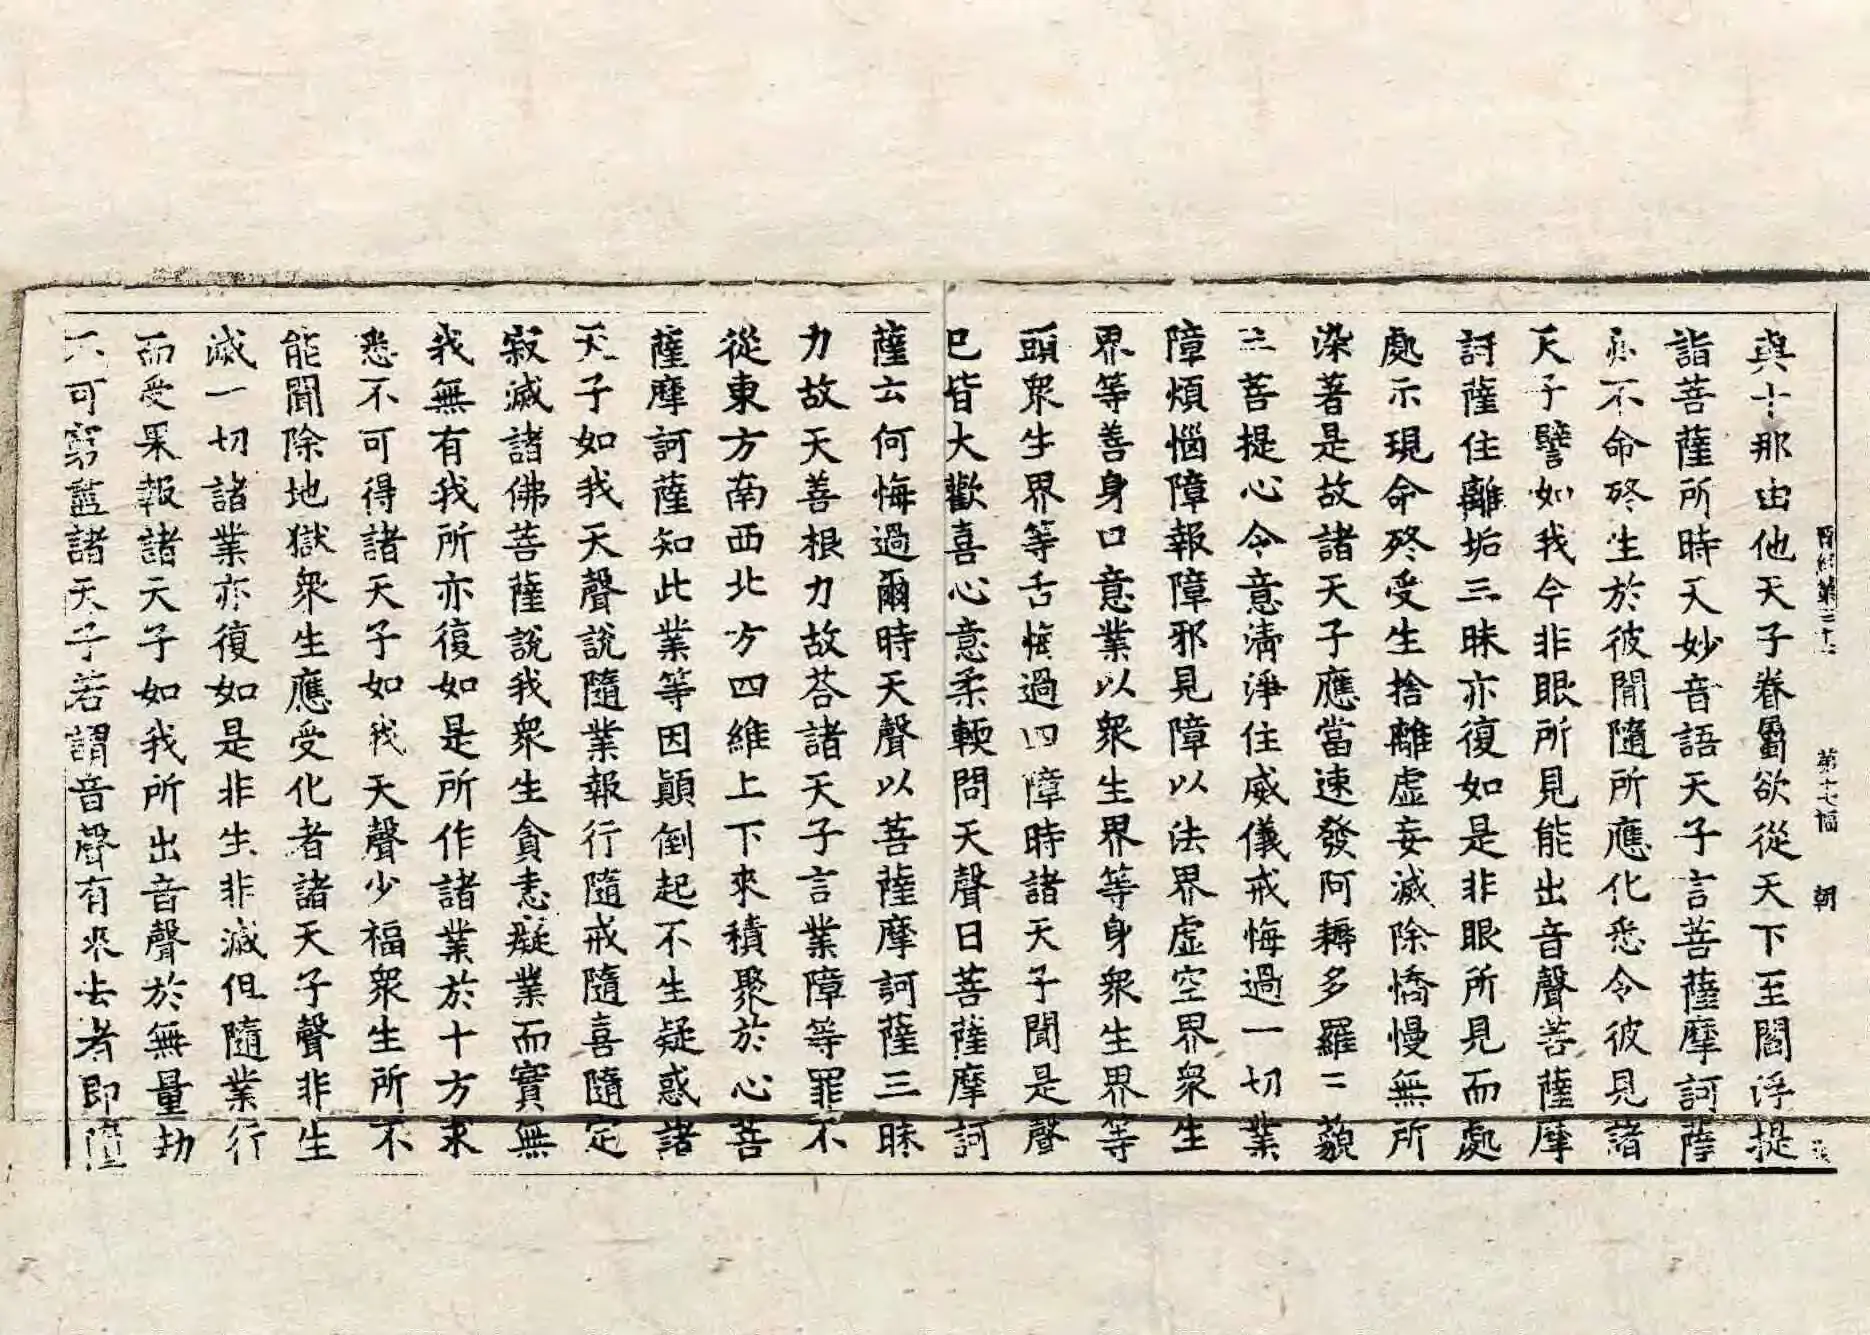 晉經第三十二 第十七幅 朝
與十那由他天子眷屬欲從天下至閻浮提
詣菩薩所時天妙音語天子言菩薩摩訶薩
亦不命終生於彼閒隨所應化悉令彼見諸
天子譬如我今非眼所見能出音聲菩薩摩
訶薩住離垢三昧亦復如是非眼所見而處
處示現命終受生捨離虛妄滅除憍慢無所
染著是故諸天子應當速發阿耨多羅三藐
三菩提心令意清淨住威儀戒悔過一切業
障煩惱障報障邪見障以法界虛空界眾生
界等善身口意業以眾生界等身眾生界等
頭眾生界等舌悔過四障時諸天子聞是聲
已皆大歡喜心意柔輭問天聲曰菩薩摩訶
薩云何悔過爾時天聲以菩薩摩訶薩三昧
力故天善根力故荅諸天子言業障等罪不
從東方南西北方四維上下來積聚於心菩
薩摩訶薩知此業等因顚倒起不生疑惑諸
天子如我天聲說隨業報行隨戒隨喜隨定
寂滅諸佛菩薩說我眾生貪恚癡業而實無
我無有我所亦復如是所作諸業於十方求
悉不可得諸天子如我天聲少福眾生所不
能聞除地獄眾生應受化者諸天子聲非生
滅一切諸業亦復如是非生非滅但隨業行
而受果報諸天子如我所出音聲於無量劫
不可窮盡諸天子若謂音聲有來去者即墮